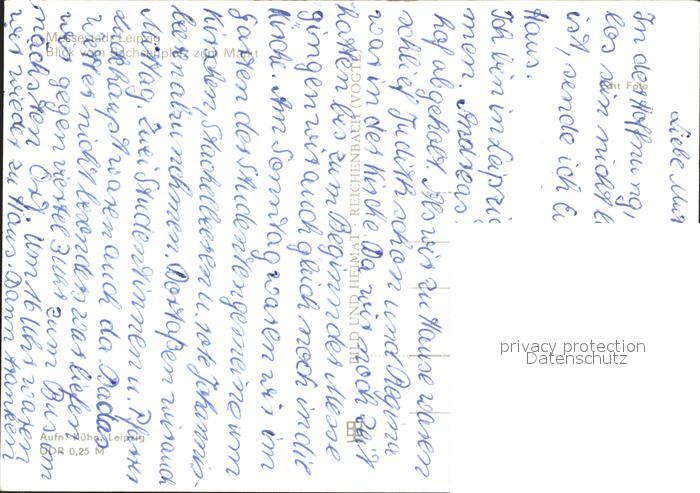 Liebe Mut
In der Hoffnung,
los sein nicht b
ist, sende ich E
Haus.
Ich bin in Leipzi
men. Andreas
hof abgeholt. Als wir zu Hause waren
schlief Judith schon und Regina
war in der Kirche. Da wir noch Zeit
hatten bis zum Beginn der Messe
gingen wir auch gleich noch in die
Kirche. Am Sonntag waren wir im
Garten der Studentengemeinde um
Kirschen, Stachelbeeren u. rote Johannis-
beeren abzunehmen. Dort aßen wir auch
Mittag. Zwei Studentinnen u. Pfarrer
waren auch da. Da das
Wetter nicht besonders war liefen
wir gegen viertel Uhr zum Bus am
nächsten Ort. Um 16 Uhr waren
wir wieder zu Haus. Dann tranken
Messestadt Leipzig
Blick vom Sachsenplatz zum Markt
Echt Foto
BILD UND HEIMAT · REICHENBACH (VOGTL)
Aufn. Kühn, Leipzig
DDR 0,25 M
privacy protection
Datenschutz